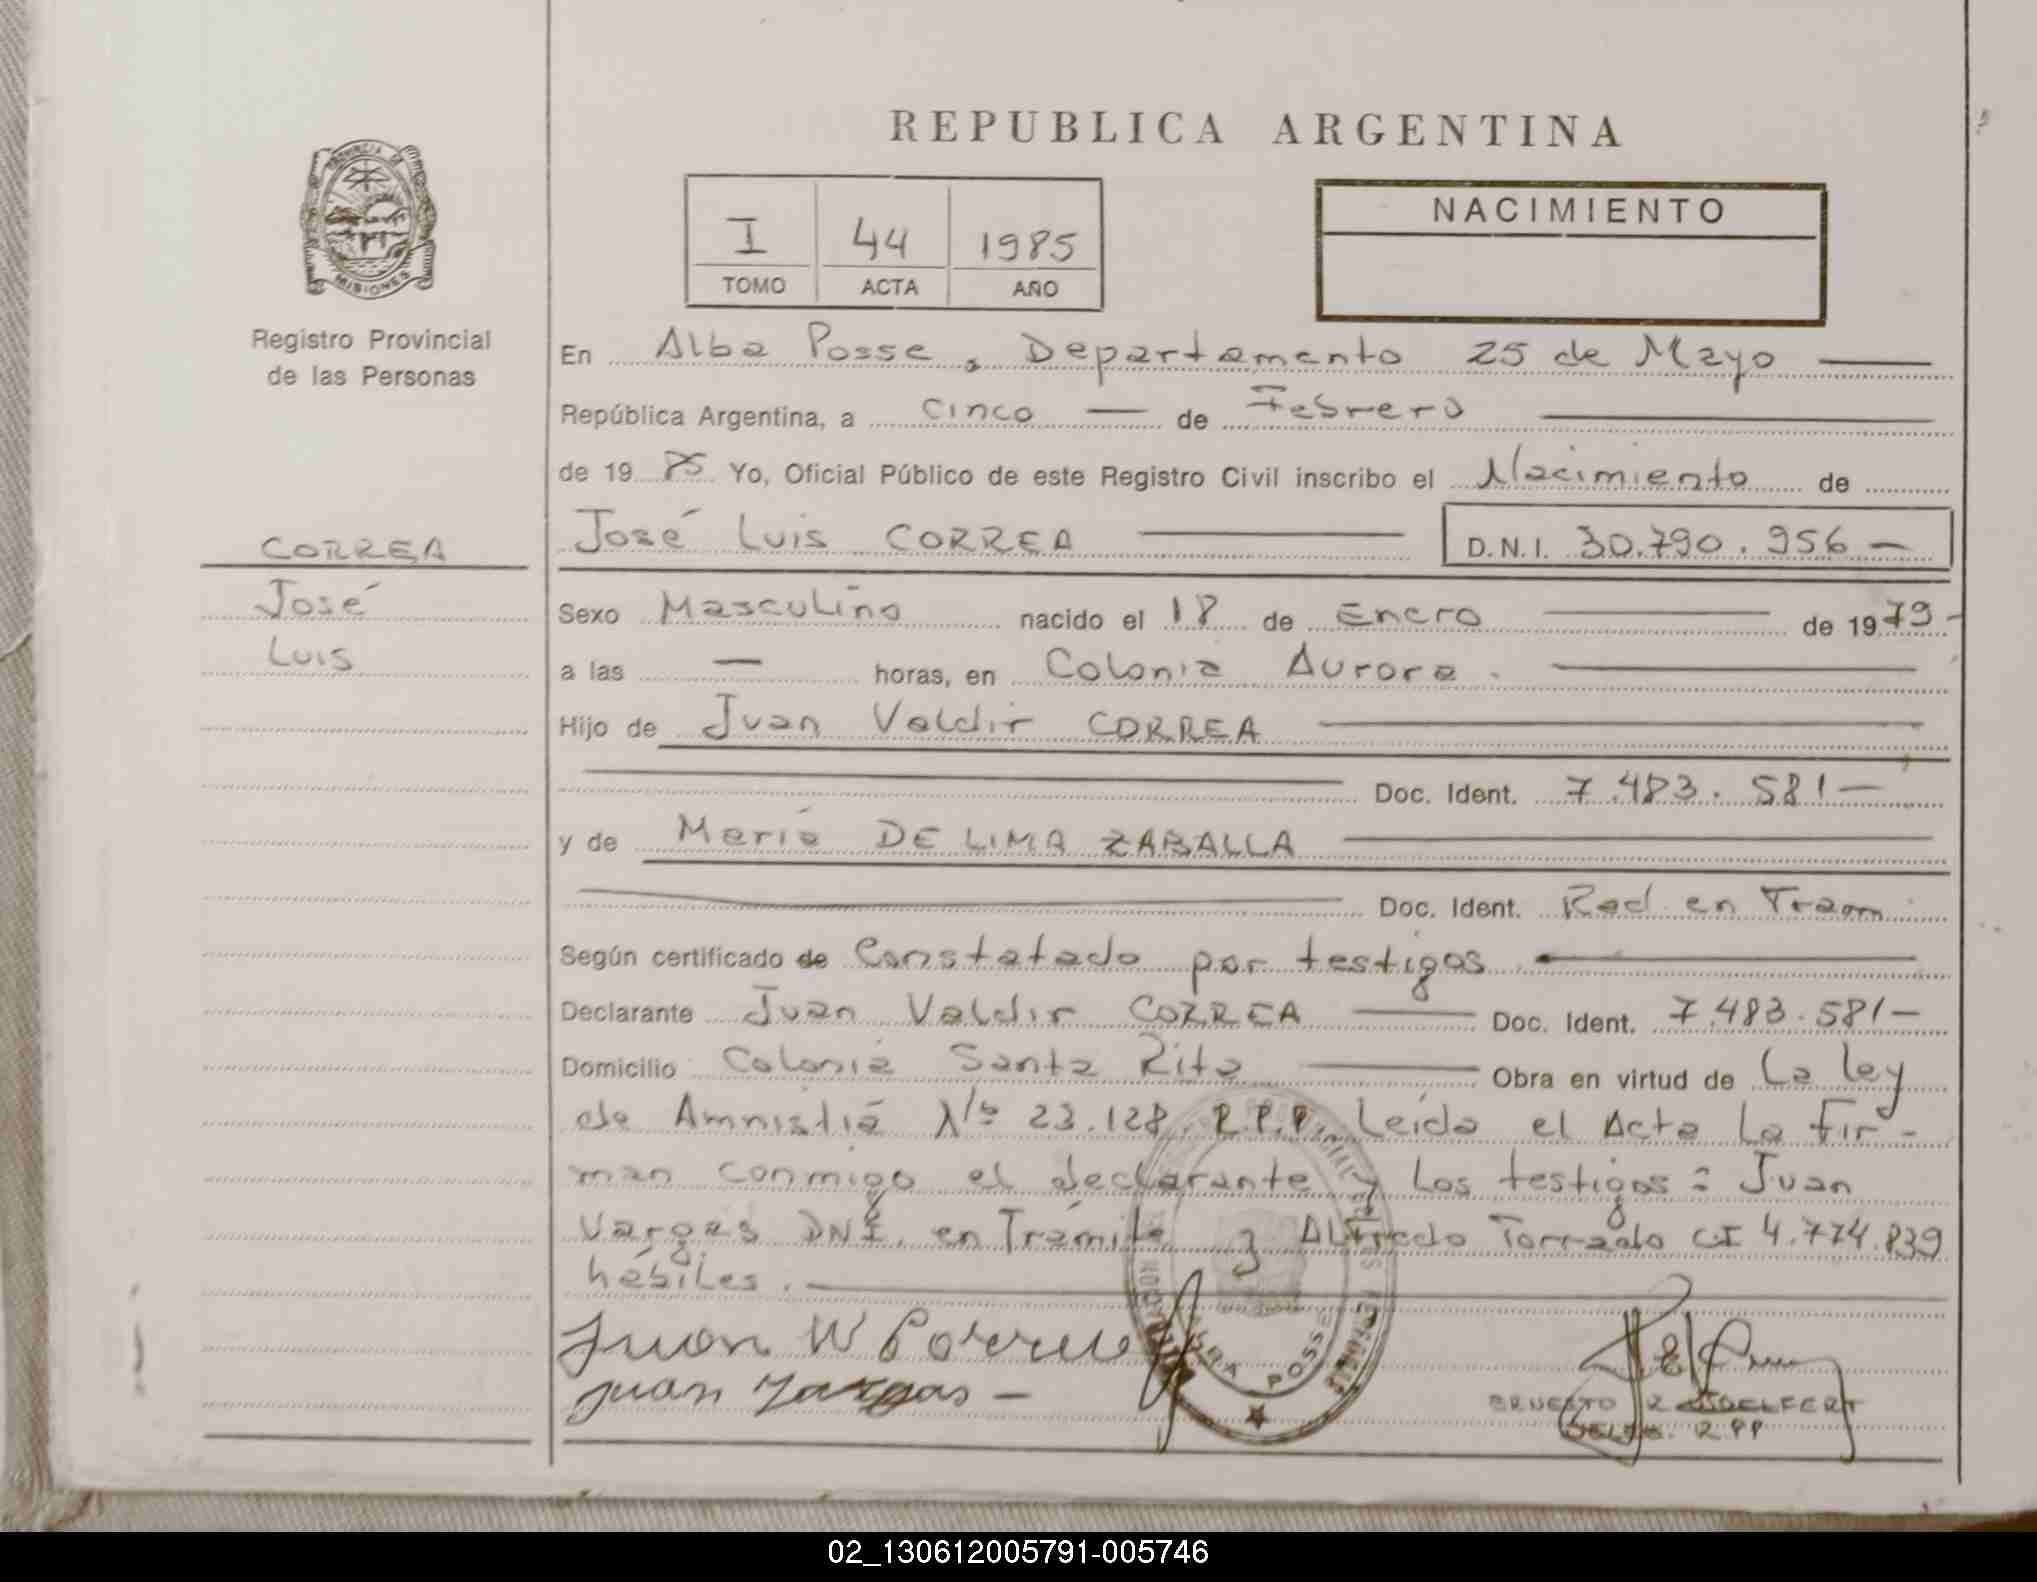 REPUBLICA ARGENTINA
PROVINCIA DE
MISIONES
Registro Provincial
de las Personas
I 44 1985
TOMO ACTA AÑO
NACIMIENTO
En Alba Posse, Departamento 25 de Mayo
República Argentina, a cinco de Febrero
de 1985 Yo, Oficial Público de este Registro Civil inscribo el Nacimiento de
CORREA
José
Luis
José Luis CORREA D.N.I. 30.790.956
Sexo Masculino nacido el 18 de Enero de 1979
a las — horas, en Colonia Aurora.
Hijo de Juan Valdir CORREA
Doc. Ident. 7.483.581
y de María DE LIMA ZABALLA
Doc. Ident. Rad. en Tram.
Según certificado de Constatado por testigos
Declarante Juan Valdir CORREA Doc. Ident. 7.483.581
Domicilio Colonia Santa Rita Obra en virtud de La Ley
de Amnistía Nº 23.128. R.P.P. Leída el Acta La fir-
man conmigo el declarante y Los testigos: Juan
Vargas DNI. en Trámite y Alfredo Torrado C.I 4.774.839
hábiles.
Juan W Correa
Juan Vargas
ALBA POSSE
ERNESTO R.
DELEG. R P P
02_130612005791-005746